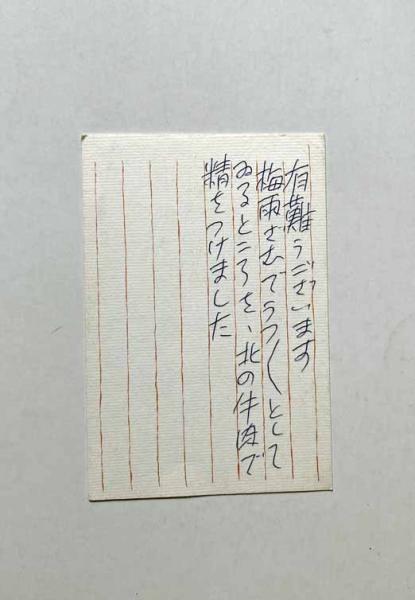 有難うございます
梅雨ざむでうつ〳〵として
ゐるところを、北の牛肉で
精をつけました